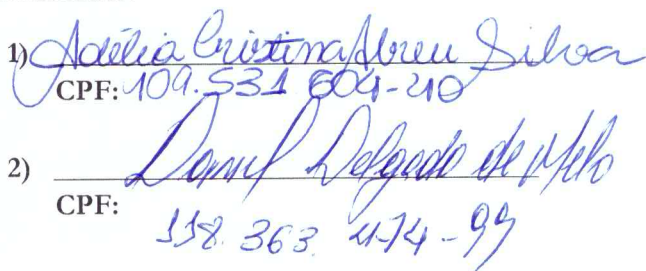 1) Adélia Cristina Abreu Silva
CPF: 109.531 604-210
2) Daniel Delgado de Melo
CPF:
118.363.474-99